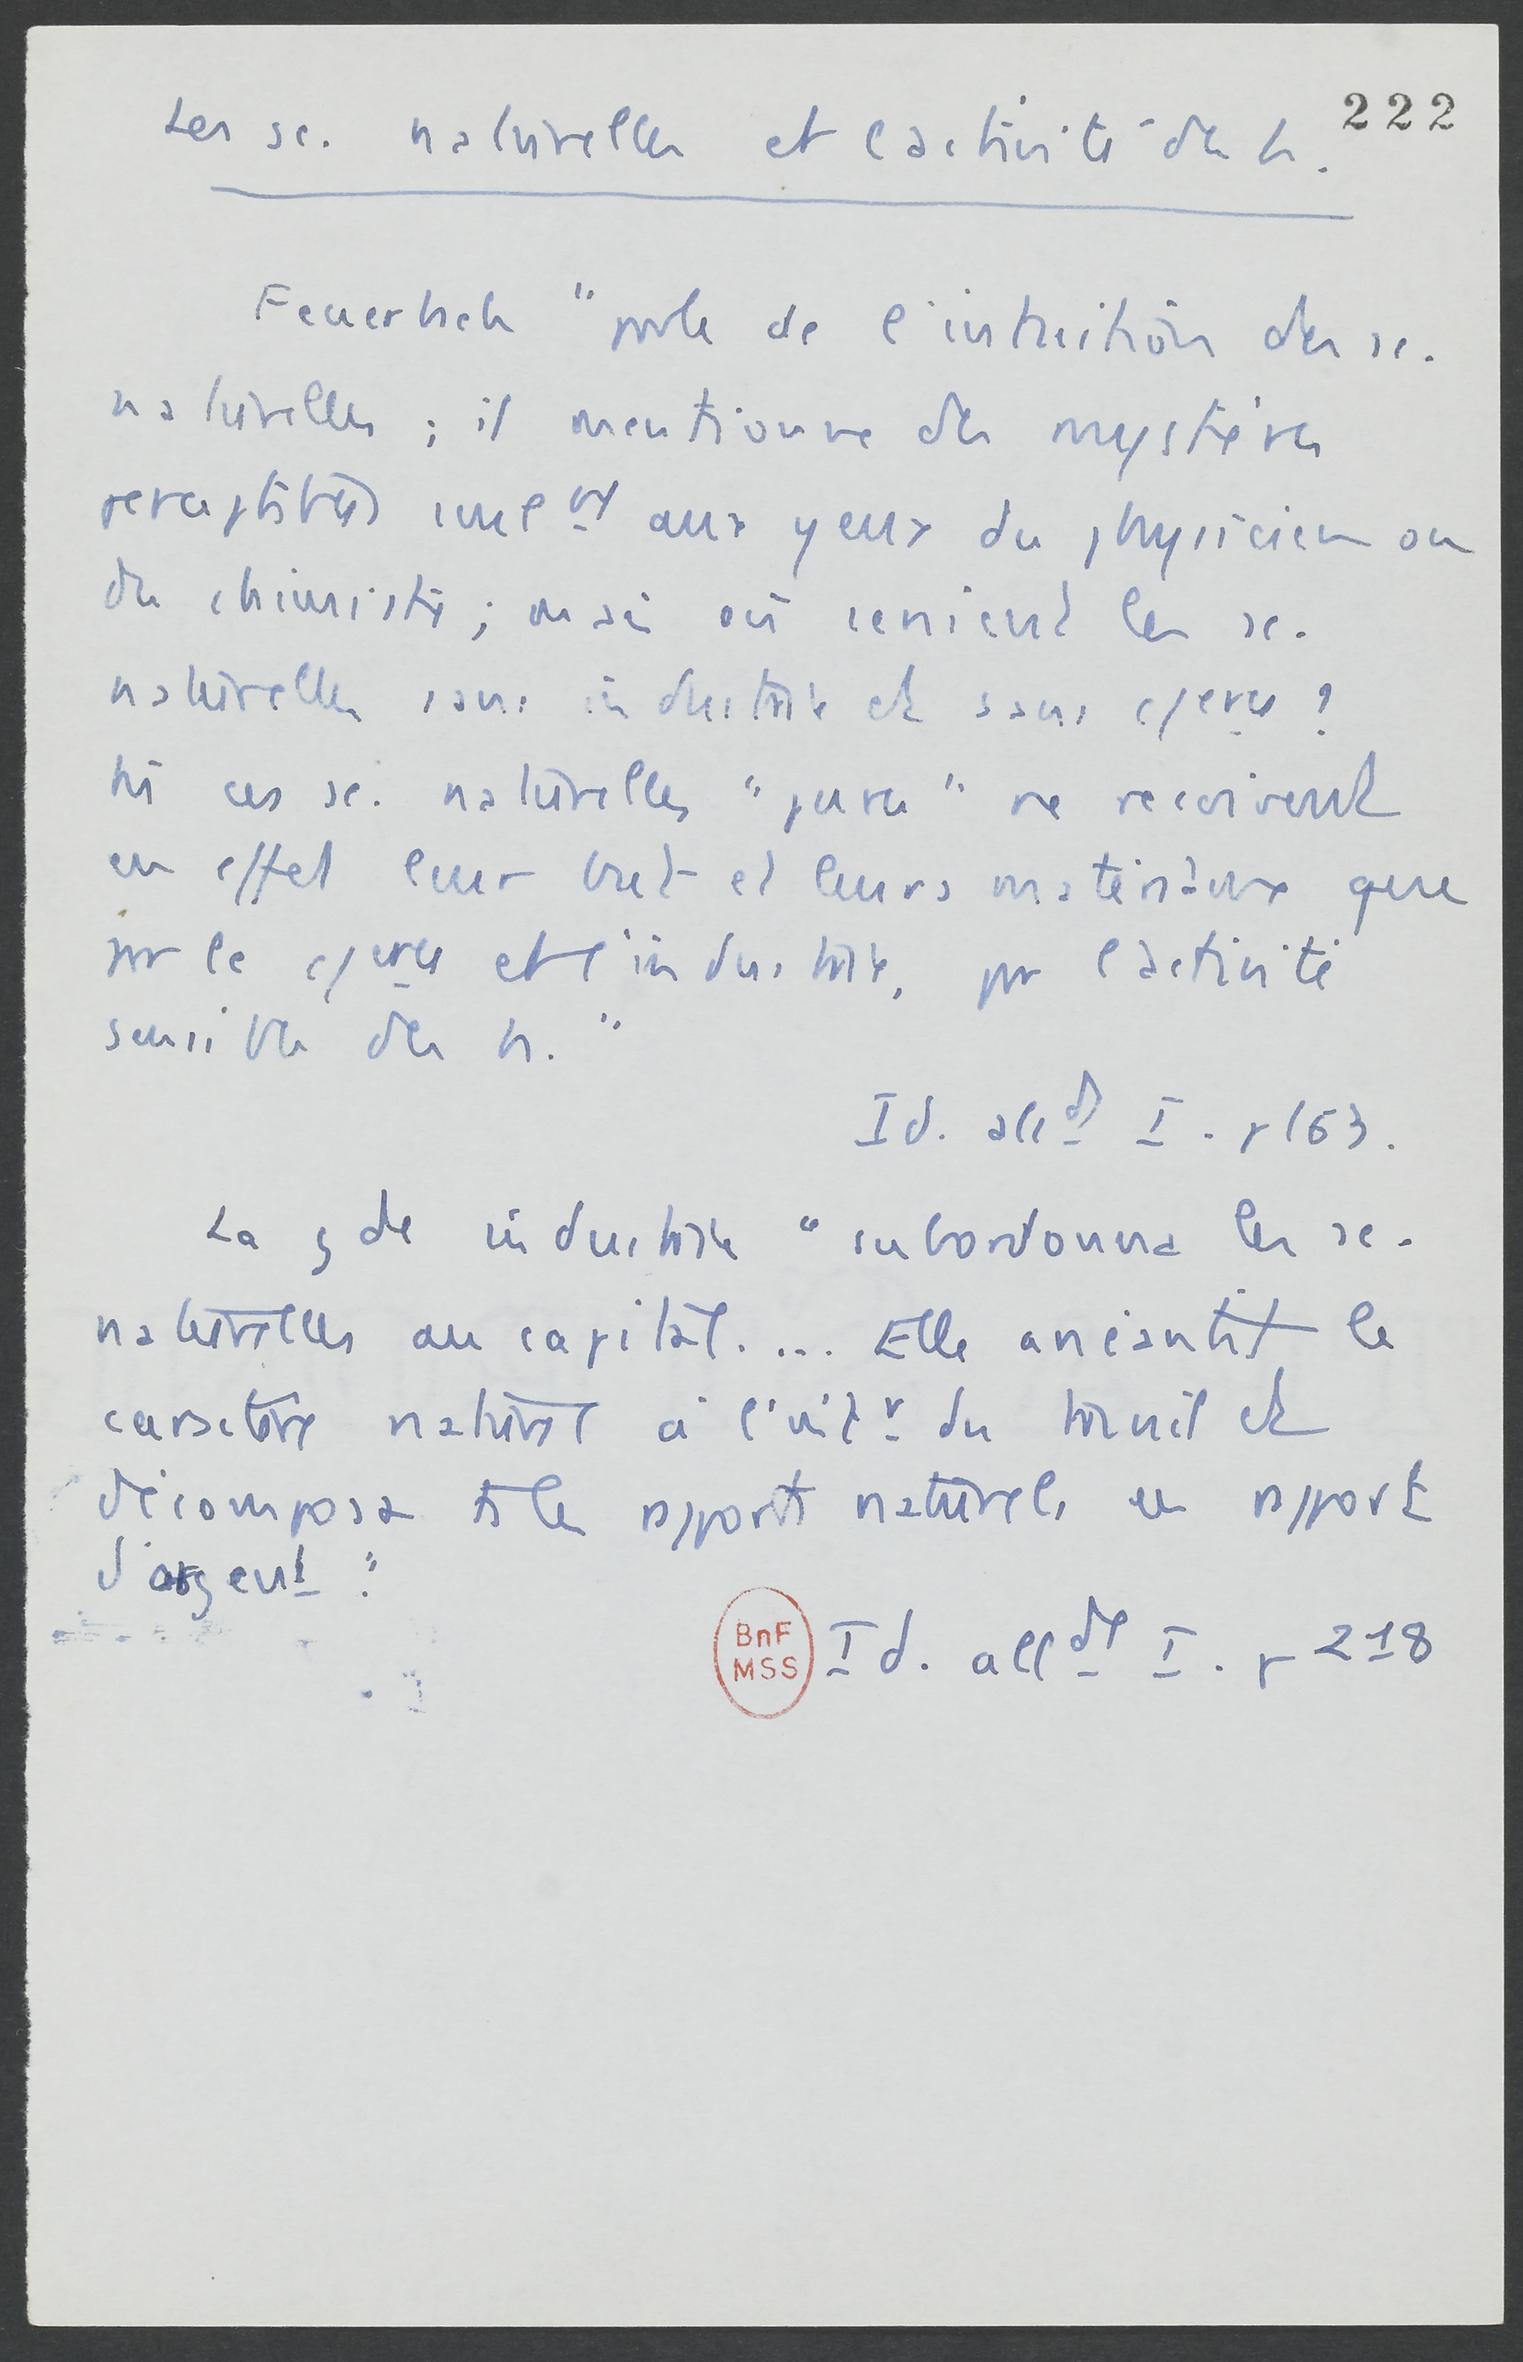 222
Les sc. naturelles et l'activité des h.
Feuerbach "parle de l'intuition des sc.
naturelles ; il mentionne des mystères
perceptibles seulnt aux yeux du physicien ou
du chimiste ; mais où seraient les sc.
naturelles sans industrie et sans commerce ?
ces sc. naturelles "pures" ne reçoivent
en effet leur but et leurs matériaux que
par le commerce et l'industrie, par l'activité
sensible des h."
Id. allde I. p 163.
La gde industrie "subordonna les sc.
naturelles au capital.... Elle anéantit le
caractère naturel à l'intr du travail et
décomposa ts les rapports naturels en rapports
d'argent".
BnF
MSS
Id. allde I. p 218